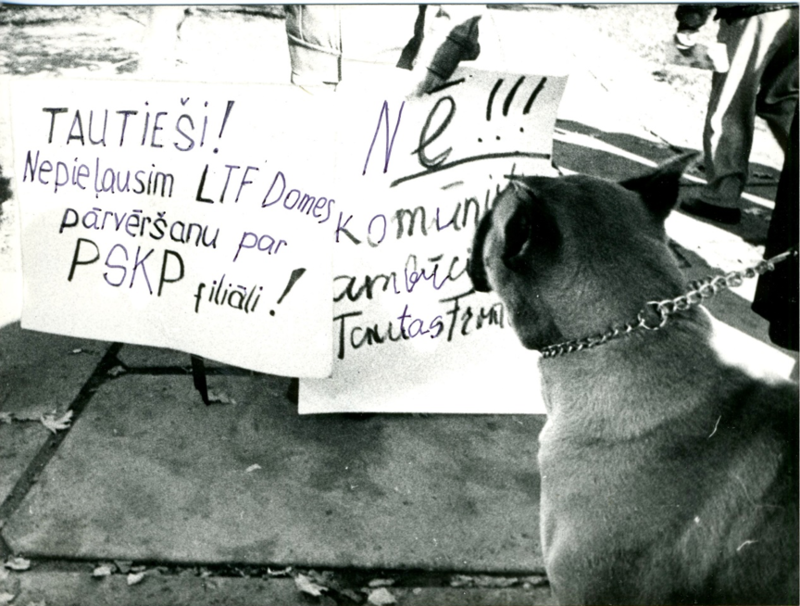 TAUTIEŠI!
Nepieļausim LTF Domes
pārvēršanu par
PSKP filiāli!
Nē!!!
ambīci
Tautas